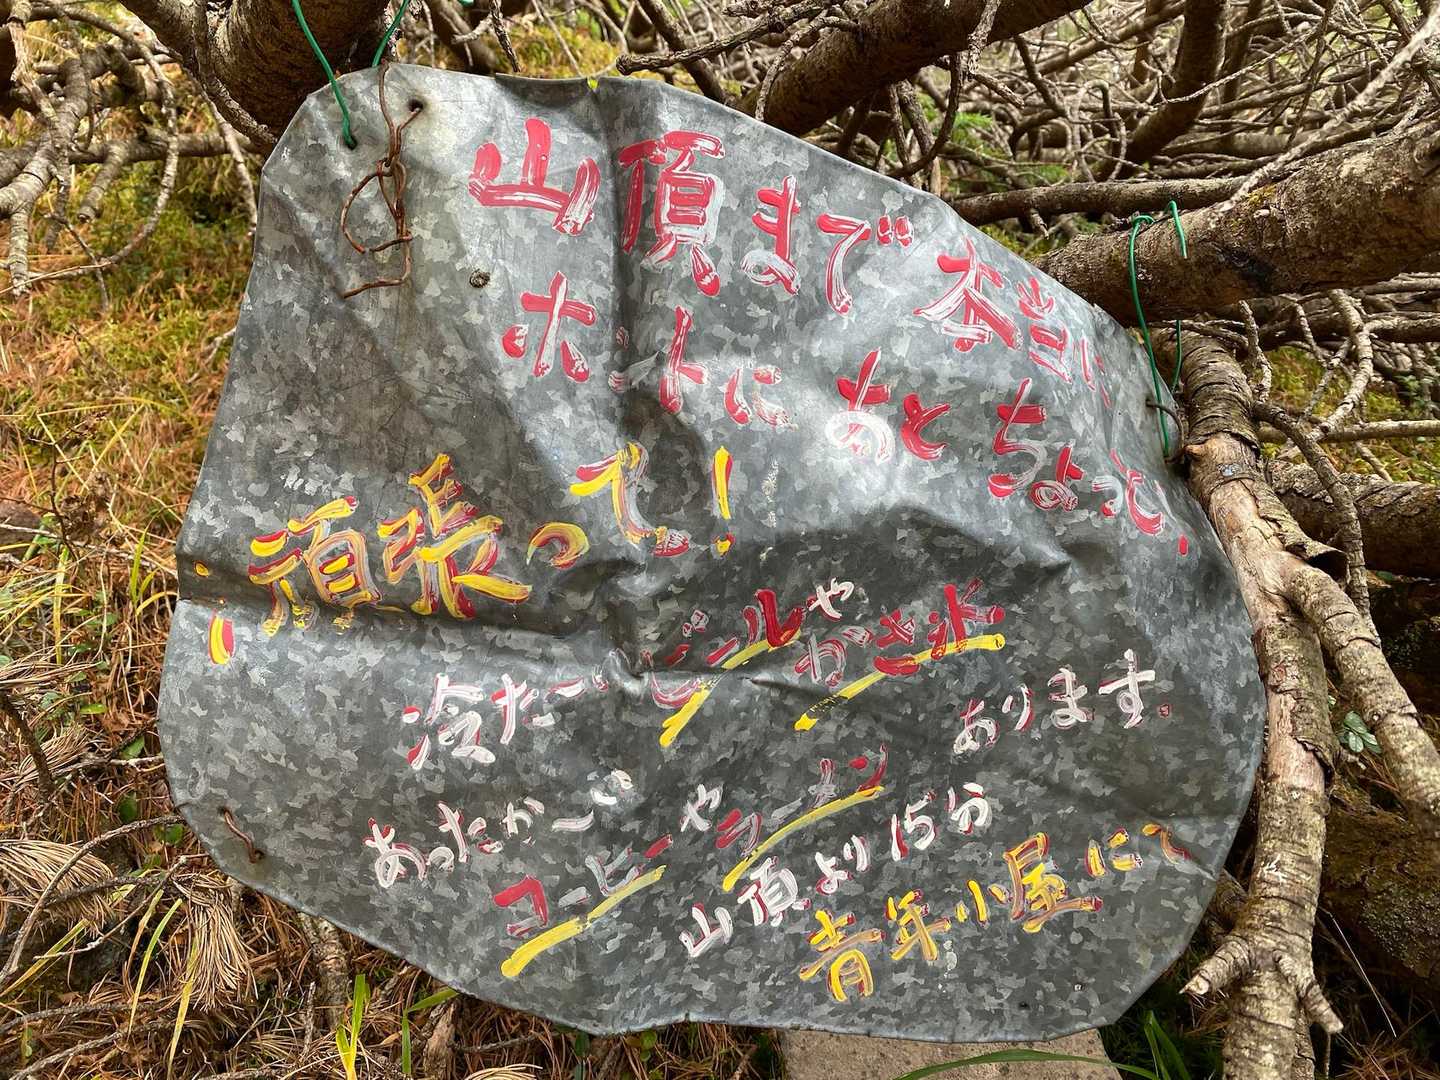 山頂まで本当に
ホントにあとちょっと。
頑張って!
冷た〜いビールやかき氷
あります。
あったか〜い
コーヒーやラーメン
山頂より15分
青年小屋にて